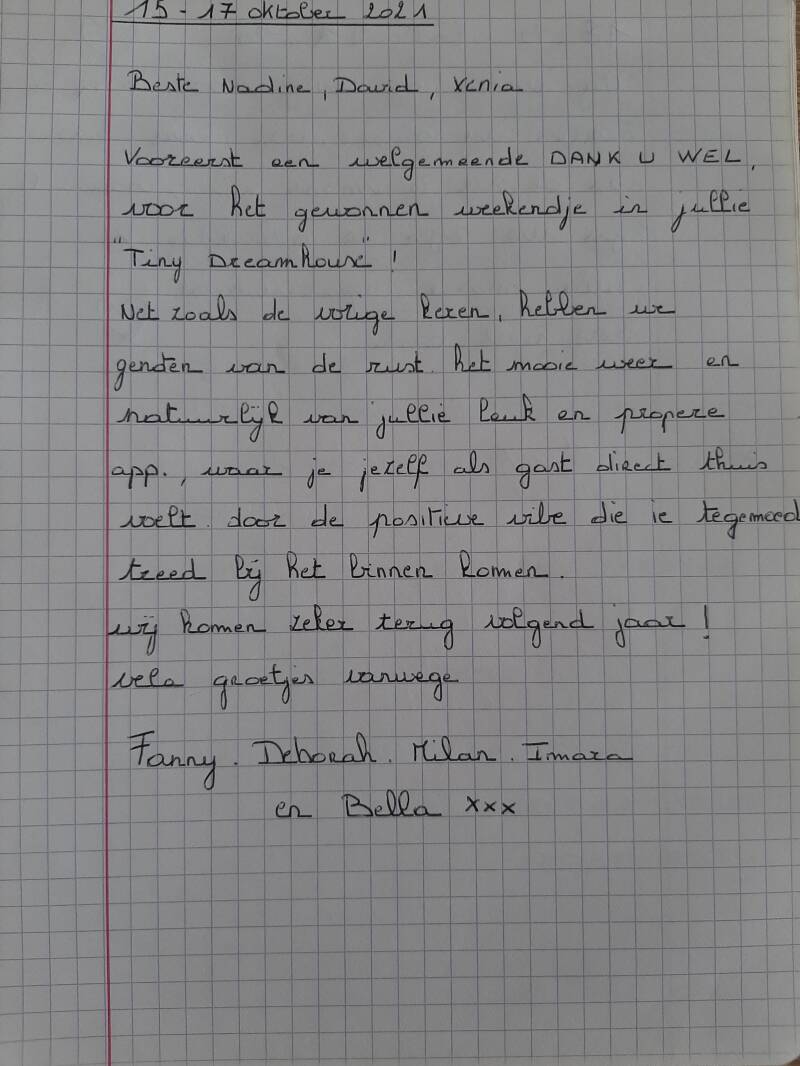 15 - 17 oktober 2021
Beste Nadine, David, Xenia
Vooreerst een welgemeende DANK U WEL,
voor het gewonnen weekendje in jullie
"Tiny Dreamhouse" !
Net zoals de vorige keren, hebben we
genoten van de rust. het mooie weer en
natuurlijk van jullie leuk en propere
app., waar je jezelf als gast direct thuis
voelt. door de positieve vibe die je tegemoed
treed bij het binnen komen.
wij komen zeker terug volgend jaar !
vele groetjes vanwege
Fanny. Deborah. Milan. Imara
en Bella xxx